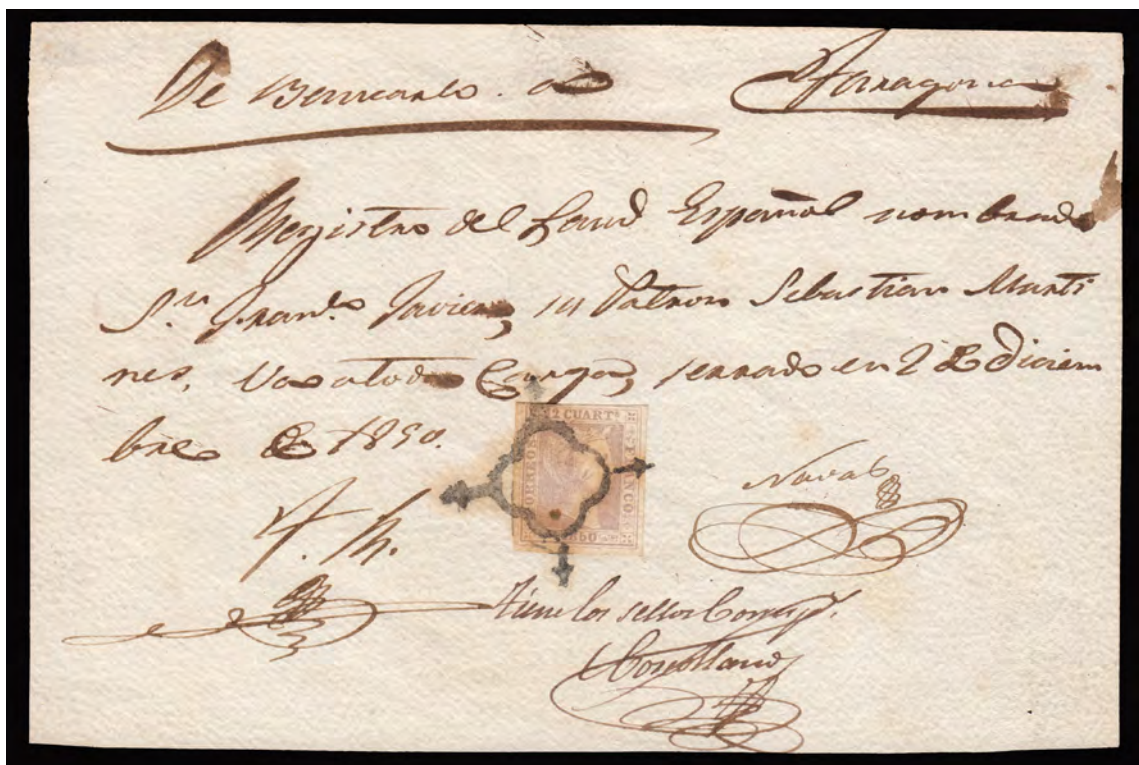 De Benicarlo a Tarragona
Registro del Laud Español nombrado
Sn. Franco. Javier, su Patron Sebastian Marti
nes, Vas a toda Carga, serrado en 2 de Diciem
bre de 1850.
12 CUARTs
CORREOS FRANCO
1850
Naval
Tiene los sellos Corresp.